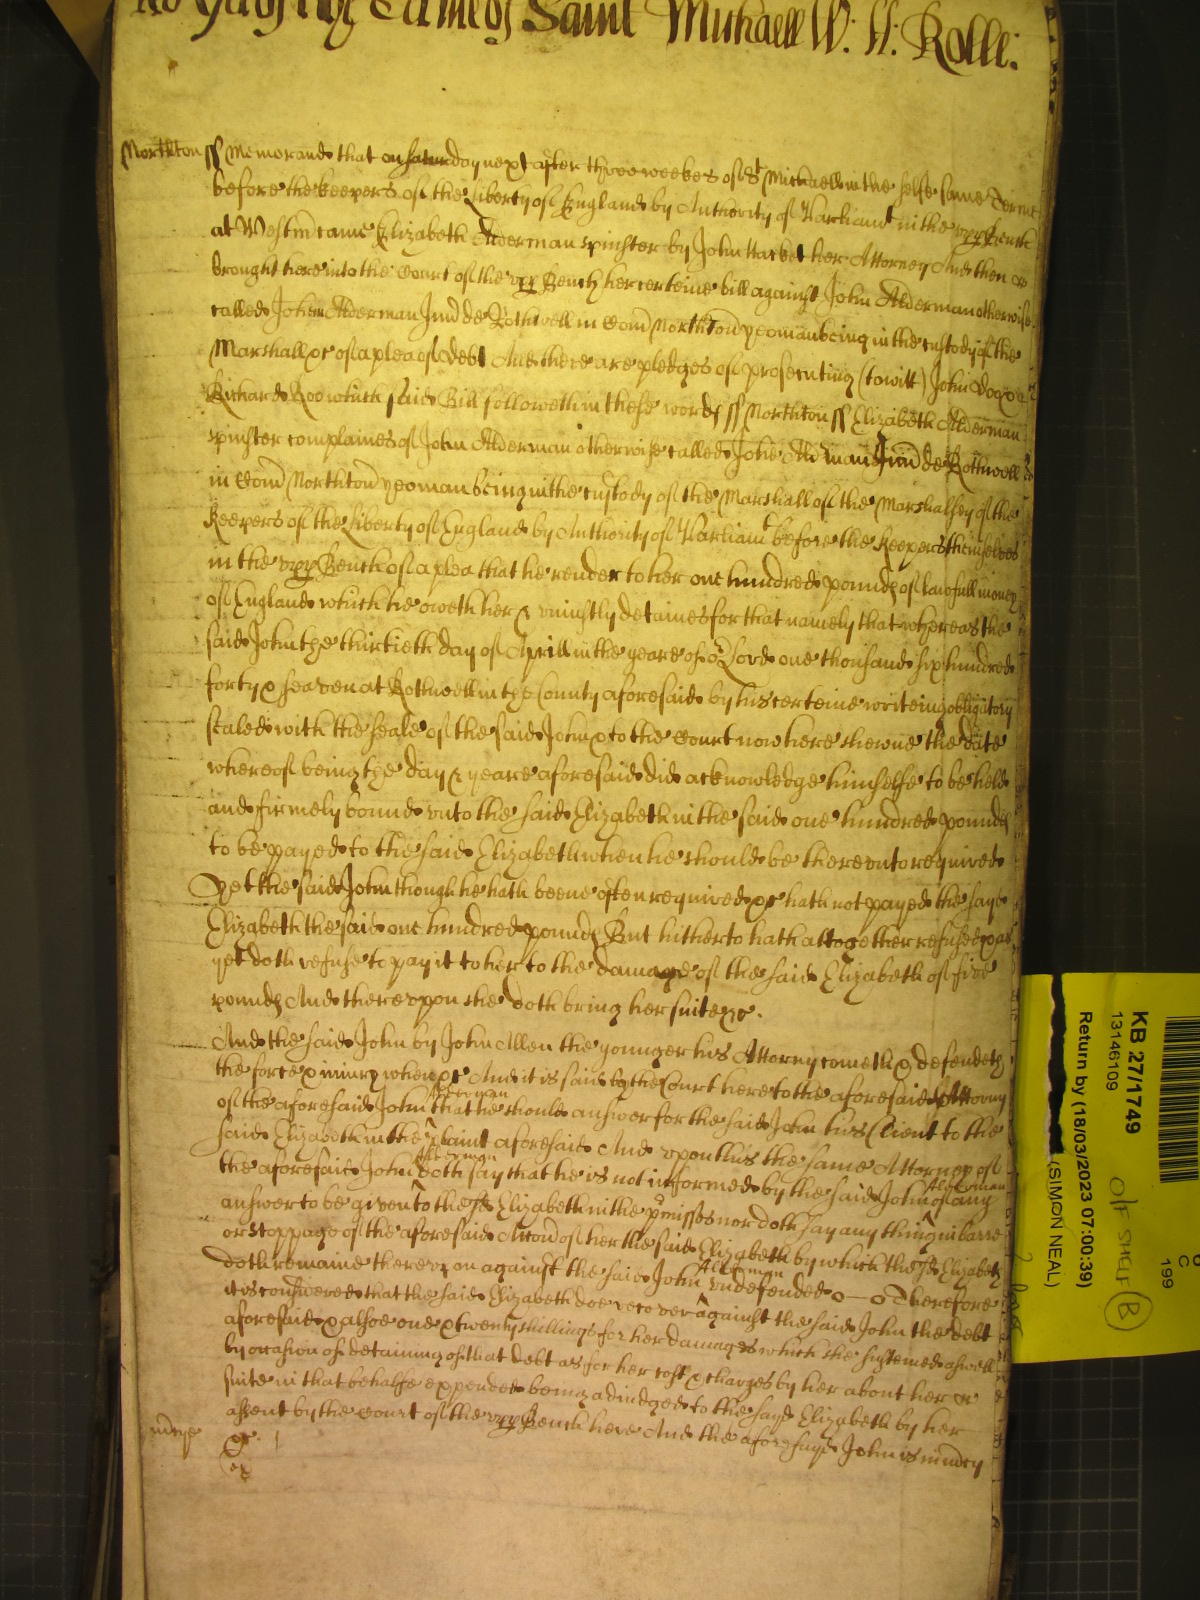 Terme of Saint Michaell W: H: Rolle:
Northton ss Memorand that on saturday next after three weekes of St Michaell in the selfe same Terme
before the keepers of the Liberty of England by Authority of Parliamt in the vpp Bench
at Westm came Elizabeth Alderman spinster by John Hacket her Attorney And then &
brought here into the Court of the vpp Bench her certeine bill against John Alderman otherwise
called John Alderman Jun de Rothwell in Com Northton yeoman being in the custody of the
Marshall &c of a plea of debt And there are pledges of prosecuting (to witt) John Doo &
Richard Roo which said Bill followeth in these words ss Northton ss Elizabeth Alderman
spinster complaines of John Alderman otherwise called John Alderman Jun de Rothwell
in Com Northton yeoman being in the custody of the Marshall of the Marshalsey of the
Keepers of the Liberty of England by Authority of Parliamt before the Keepers themselves
in the vpp Bench of a plea that he render to her one hundred pounds of lawfull money
of England which he oweth her & vniustly detaines for that namely that whereas the
said John the thirtieth day of Aprill in the yeare of or Lord one thousand six hundred
forty & seaven at Rothwell in the County aforesaid by his certeine writeing obligatory
sealed with the seale of the said John & to the Court now here shewne the date
whereof being the day & yeare aforesaid did acknowledge himselfe to be held
and firmely bound vnto the said Elizabeth in the said one hundred pounds
to be payed to the said Elizabeth when he should be therevnto required
Yet the said John though he hath beene often required &c hath not payed the sayd
Elizabeth the said one hundred pounds But hitherto hath altogether refused & as
yet doth refuse to pay it to her to the damage of the said Elizabeth of five
pounds And therevpon she doth bring her suite &c.
And the said John by John Allen the younger his Attorny cometh & defendeth
the force & iniury when &c And it is said by the Court here to the aforesaid Attorny
of the aforesaid John Alderman that he should answer for the said John his Client to the
said Elizabeth in the plaint aforesaid And vpon this the same Attorney of
the aforesaid John Alderman doth say that he is not informed by the said John Alderman of any
answer to be given to the sd Elizabeth in the pmisses nor doth say any thing in barre
or stoppage of the aforesaid Accon of her the said Elizabeth by which the sd Elizabeth
doth remaine therevpon against the said John Alderman vndefended o—o Therefore
it is considered that the said Elizabeth doe recover against the said John the debt
aforesaid & alsoe one & twenty shillings for her damages which she susteined aswell
by occasion of detaining of that debt as for her cost & charges by her about her
suite in that behalfe expended being adiudged to the sayd Elizabeth by her
assent by the Court of the vpp Bench here And the aforesayd John is in mercy
&c.
KB 27/1749
13146109
Return by (18/03/2023 07:00:39)
(SIMON NEAL)
B
C
199